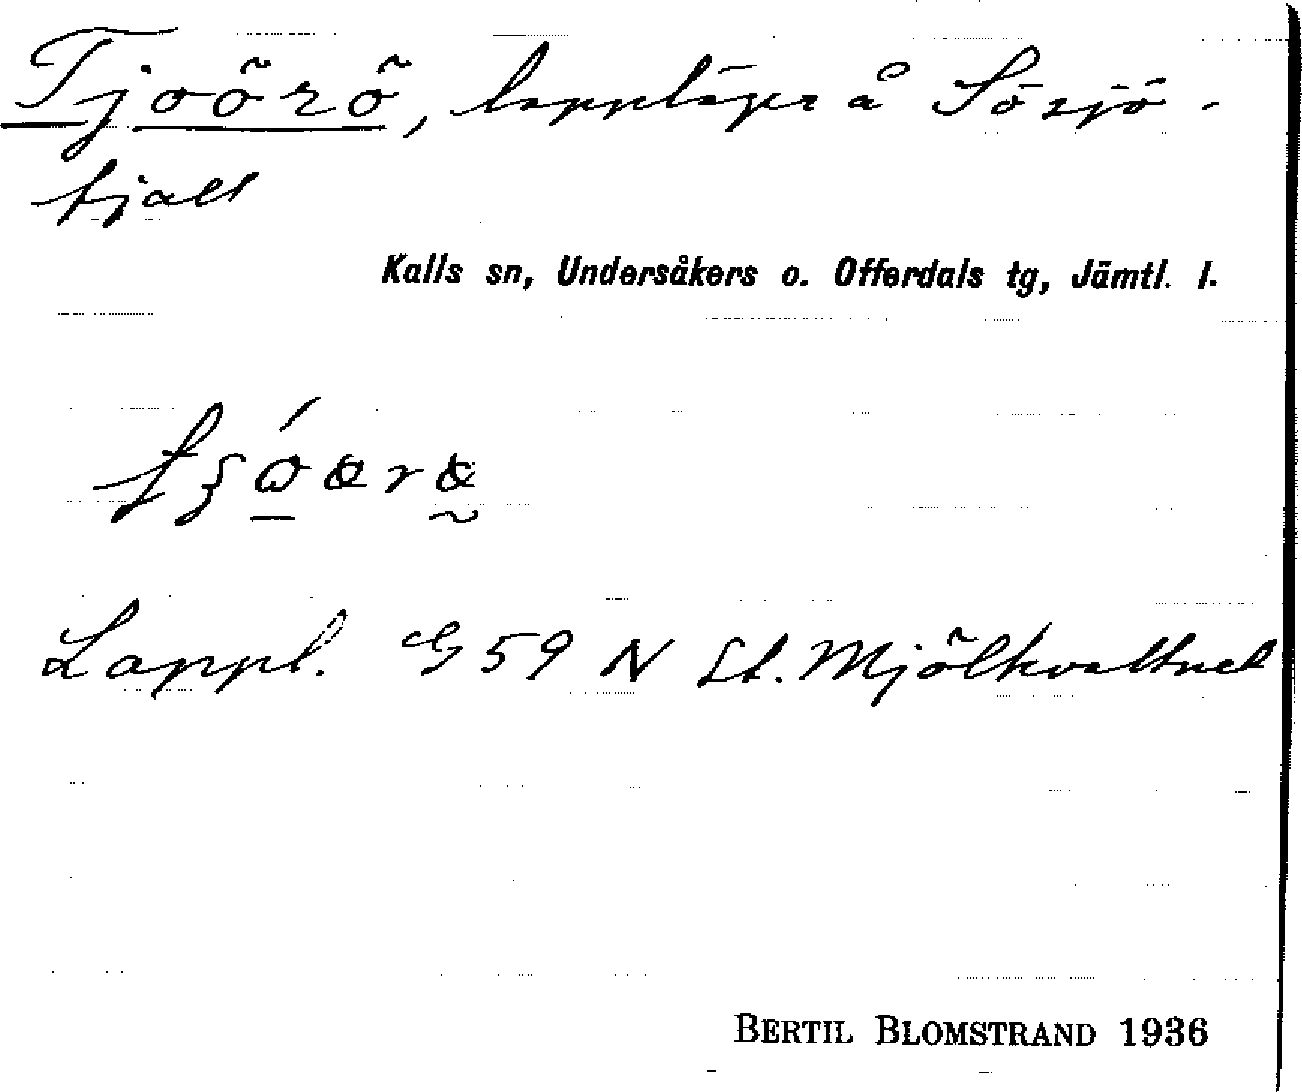 Tjoörö, lappläger å Sösjö-
fjäll
Kalls sn, Undersåkers o. Offerdals tg, Jämtl. l.
Lappl. G 59 N St. Mjölkvattnet
BERTIL BLOMSTRAND 1936